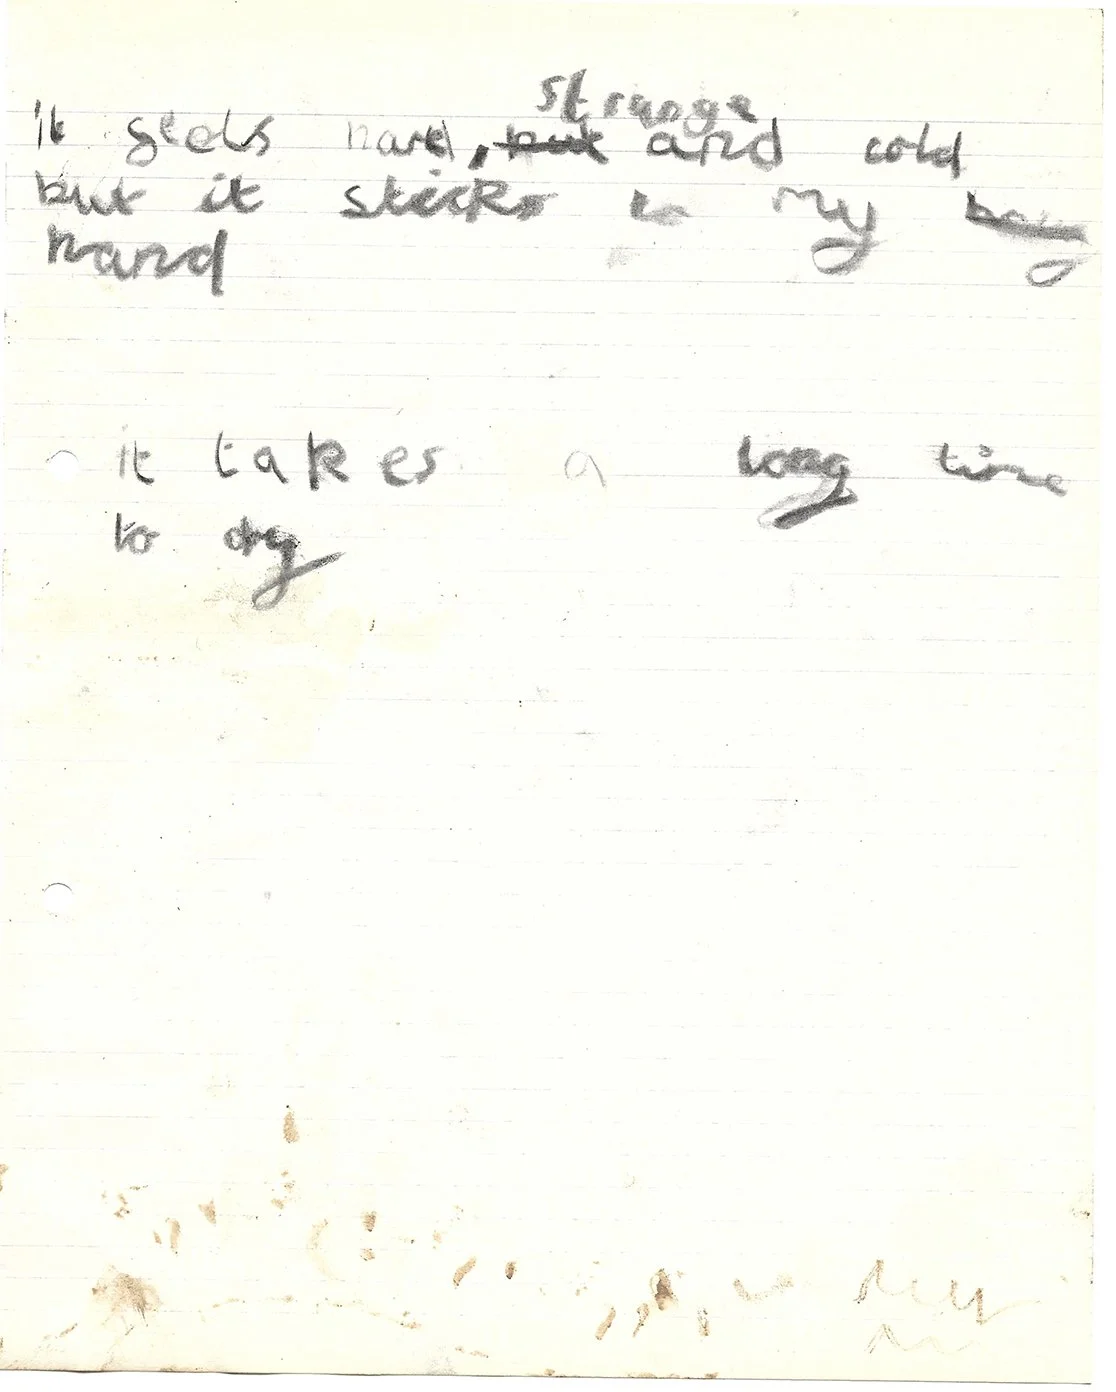 strange
it feels hard, but and cold
but it sticks to my body
hand
it takes a long time
to dry